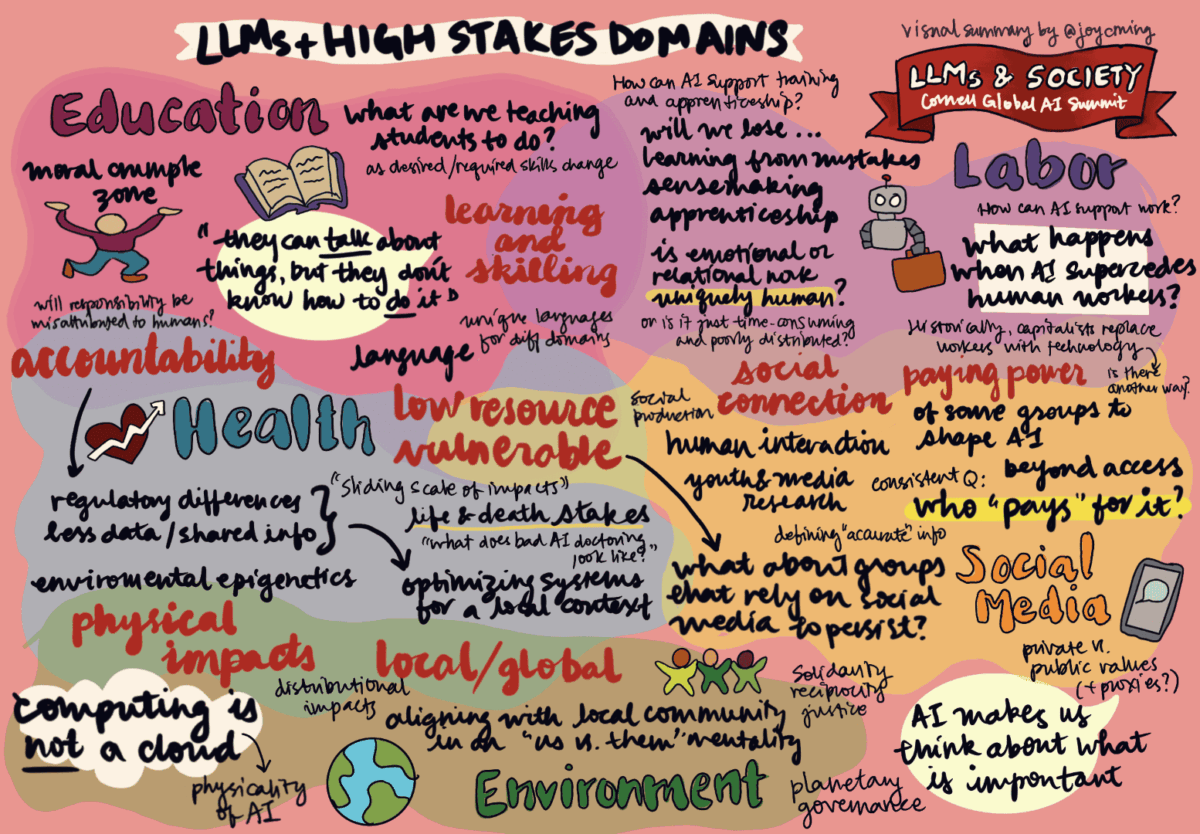 LLMs + HIGH STAKES DOMAINS
visual summary by @joycming
LLMs & SOCIETY
Cornell Global AI Summit
Education
what are we teaching
students to do?
as desired/required skills change
moral crumple
zone
will responsibility be
misattributed to humans?
"they can talk about
things, but they don't
know how to do it"
learning
and
skilling
unique languages
for diff domains
language
How can AI support training
and apprenticeship?
will we lose ...
learning from mistakes
sensemaking
apprenticeship
is emotional or
relational work
uniquely human?
or is it just time-consuming
and poorly distributed?
Labor
How can AI support work?
what happens
when AI supercedes
human workers?
Historically, capitalists replace
workers with technology
is there
another way?
accountability
Health
low resource
vulnerable
regulatory differences
less data/shared info
"sliding scale of impacts"
life & death stakes
"what does bad AI doctoring
look like?"
enviromental epigenetics
optimizing systems
for a local context
social
connection
social
production
human interaction
youth & media
research
paying power
of some groups to
shape AI
consistent Q:
beyond access
who "pays" for it?
defining "accurate" info
what about groups
that rely on social
media to persist?
Social
Media
private vs.
public values
(+ proxies?)
physical
impacts
local/global
distributional
impacts
solidarity
reciprocity
justice
computing is
not a cloud
physicality
of AI
aligning with local community
in an "us vs. them" mentality
Environment
planetary
governance
AI makes us
think about what
is important